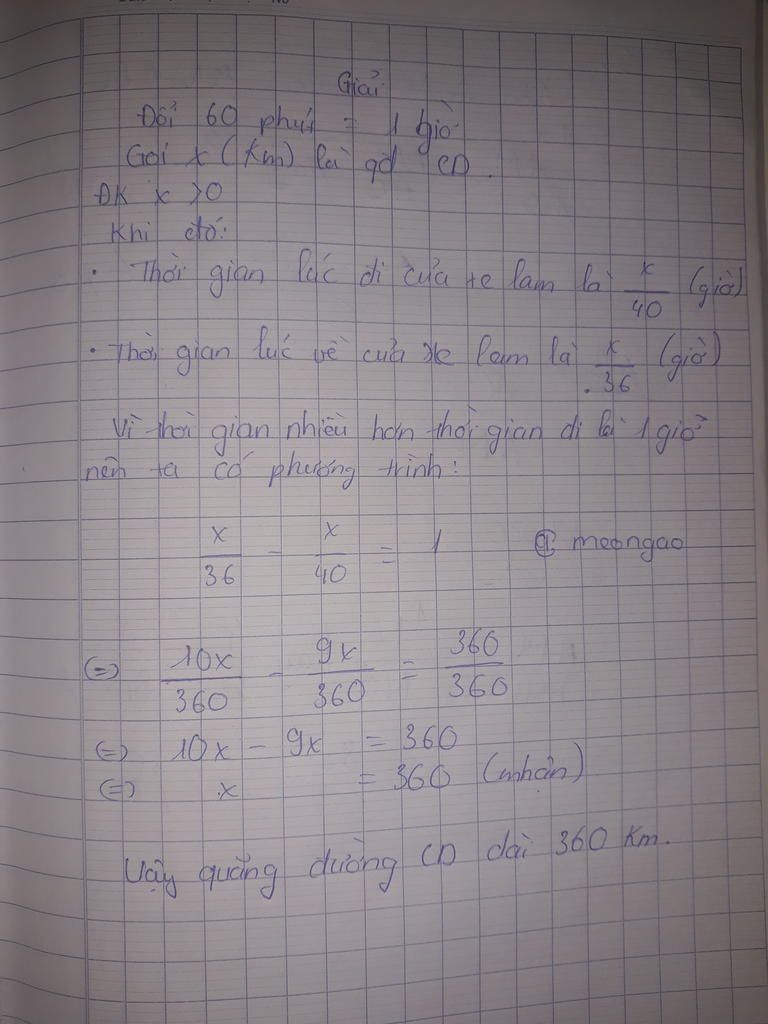 Giải
Đổi 60 phút = 1 giờ
Gọi x (km) là qđ CD.
ĐK x > 0
Khi đó:
• Thời gian lúc đi của xe lam là x/40 (giờ)
• Thời gian lúc về của xe lam là x/36 (giờ)
Vì thời gian nhiều hơn thời gian đi là 1 giờ
nên ta có phương trình:
x/36 - x/40 = 1 @ meongao
(=) 10x/360 - 9x/360 = 360/360
(=) 10x - 9x = 360
(=) x = 360 (nhận)
Vậy quãng đường CD dài 360 Km.